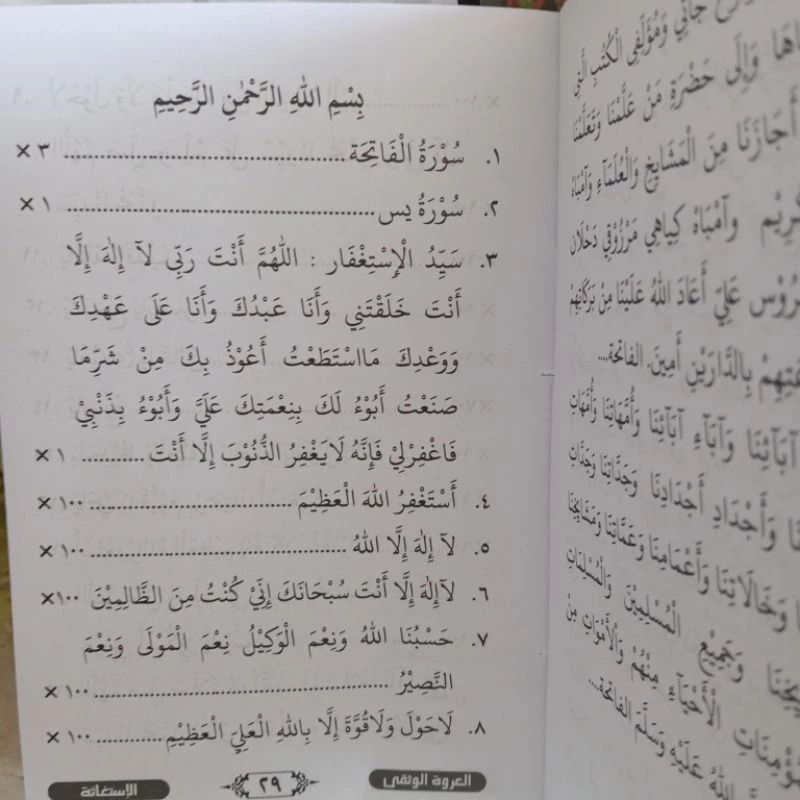 بِسْمِ اللهِ الرَّحْمٰنِ الرَّحِيمِ
١. سُوْرَةُ الْفَاتِحَة ............ ٣ ×
٢. سُوْرَةُ يس ............ ١ ×
٣. سَيِّدُ الْإِسْتِغْفَار : اَللّٰهُمَّ أَنْتَ رَبِّى لآ إِلٰهَ إِلَّا
أَنْتَ خَلَقْتَنِي وَأَنَا عَبْدُكَ وَأَنَا عَلَى عَهْدِكَ
وَوَعْدِكَ مَااسْتَطَعْتُ أَعُوْذُ بِكَ مِنْ شَرِّمَا
صَنَعْتُ أَبُوْءُ لَكَ بِنِعْمَتِكَ عَلَيَّ وَأَبُوْءُ بِذَنْبِيْ
فَاغْفِرْلِيْ فَإِنَّهُ لَايَغْفِرُ الذُّنُوْبَ إِلَّا أَنْتَ ............ ١ ×
٤. أَسْتَغْفِرُ اللهَ الْعَظِيْمَ ............ ١٠٠ ×
٥. لآ إِلٰهَ إِلَّا اللهُ ............ ١٠٠ ×
٦. لآإِلٰهَ إِلَّا أَنْتَ سُبْحَانَكَ إِنِّيْ كُنْتُ مِنَ الظَّالِمِيْنَ ١٠٠×
٧. حَسْبُنَا اللهُ وَنِعْمَ الْوَكِيْلُ نِعْمَ الْمَوْلَى وَنِعْمَ
النَّصِيْرُ ............ ١٠٠ ×
٨. لَاحَوْلَ وَلَاقُوَّةَ إِلَّا بِاللهِ الْعَلِيِّ الْعَظِيْمِ ............ ١٠٠ ×
العروة الوثقى ٢٩ الإستغاثة
جَاتِي وَمُؤَلِّفِي الْكُتُبِ الَّتِي
وَإِلَى حَضْرَةِ مَنْ عَلَّمَنَا وَتَعَلَّمْنَا
أَجَازَنَا مِنَ الْمَشَايِخِ وَالْعُلَمَاءِ وَأَمْبَاهْ
وَأَمْبَاهْ كِيَاهِي مَرْزُوْقِي دَحْلَان
عَلِيّ أَعَادَ اللهُ عَلَيْنَا مِنْ بَرَكَاتِهِمْ
بِالدَّارَيْنِ أَمِينَ. الفاتحة....
آبَائِنَا وَآبَاءِ آبَائِنَا وَأُمَّهَاتِنَا وَأُمَّهَاتِ
وَأَجْدَادِ أَجْدَادِنَا وَجَدَّاتِنَا وَجَدَّاتِ
وَخَالَاتِنَا وَأَعْمَامِنَا وَعَمَّاتِنَا وَمَشَايِخِنَا
وَجَمِيْعِ الْمُسْلِمِيْنَ وَالْمُسْلِمَاتِ
الْأَحْيَاءِ مِنْهُمْ وَالْأَمْوَاتِ مِنْ
اللهُ عَلَيْهِ وَسَلَّمَ الفاتحة....